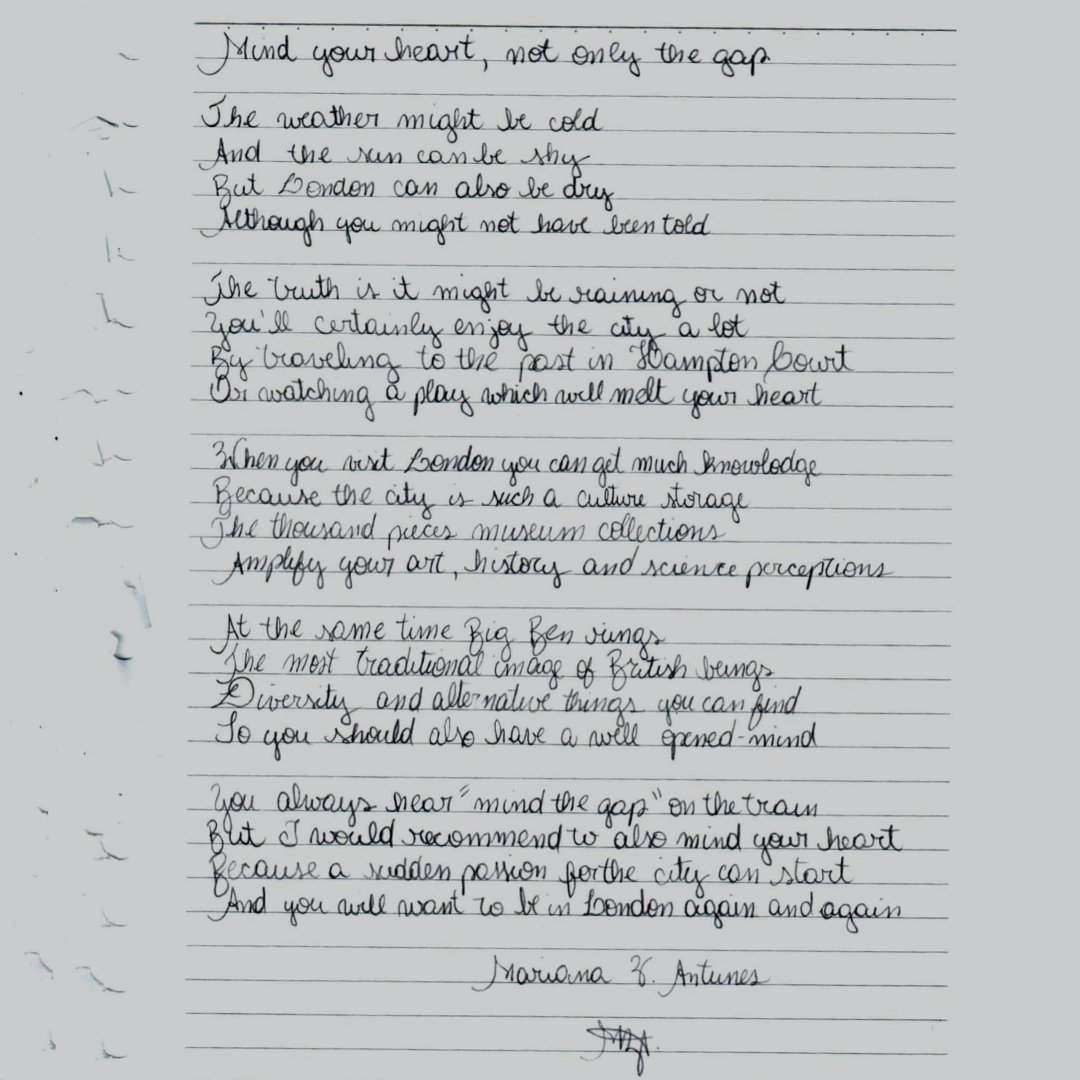 Mind your heart, not only the gap
The weather might be cold
And the sun can be shy
But London can also be dry
Although you might not have been told
The truth is it might be raining or not
You'll certainly enjoy the city a lot
By traveling to the past in Hampton Court
Or watching a play which will melt your heart
When you visit London you can get much knowledge
Because the city is such a culture storage
The thousand pieces museum collections
Amplify your art, history and science perceptions
At the same time Big Ben rings
The most traditional image of British beings
Diversity and alternative things you can find
So you should also have a well opened-mind
You always hear "mind the gap" on the train
But I would recommend to also mind your heart
Because a sudden passion for the city can start
And you will want to be in London again and again
Mariana Z. Antunes
MZA.